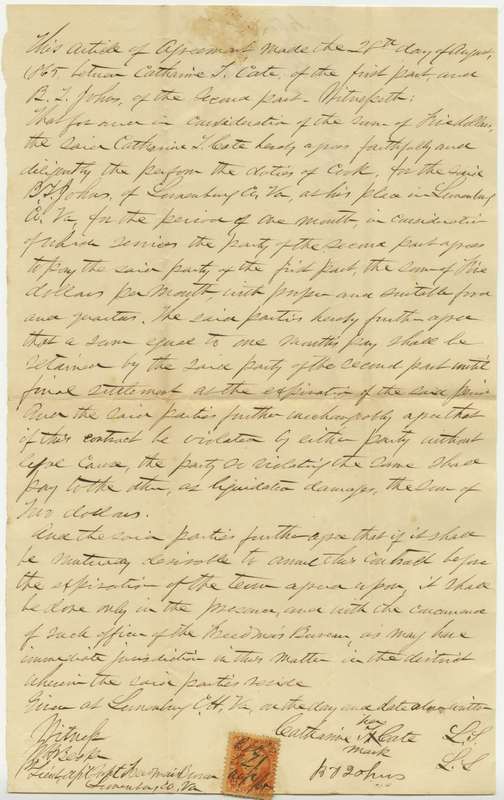 This article of Agreement, made the 28th day of August,
1865, between Catharine T. Cate, of the first part, and
B. T. Johns, of the second part - Witnesseth:
That for and in consideration of the sum of Five dollars
the said Catharine T. Cate hereby agrees faithfully and
diligently the perform the duties of Cook, for the said
B. T. Johns, of Lunenburg Co, Va, at his place in Lunenburg
Co. Va for the period of one month, in consideration
of which services the party of the second part agrees
to pay the said party of the first part, the sum of Five
dollars per month with proper and suitable food
and quarters. The said parties hereby further agree
that a sum equal to one months pay shall be
retained by the said party of the second part until
final settlement at the expiration of the said
And the said parties further interchangeably agree that
if this contract be violated by either party without
cause, the party so violating the same shall
pay to the other, as liquidated damages, the sum of
Two dollars.
And the said parties further agree that if it shall
be mutually desirable to annul this contract before
the expiration of the term agreed upon, it shall
be done only in the presence, and with the concurrence
of such officer of the Freedmen's Bureau, as may have
immediate jurisdiction in this matter in the district
wherein the said parties reside
Given at Lunenburg C.H, Va, on the day and date above written
Witness
her
Catharine T. X Cate L.S
mark
B T Johns L.S
Freedmen's Bureau
Lunenburg Co. Va